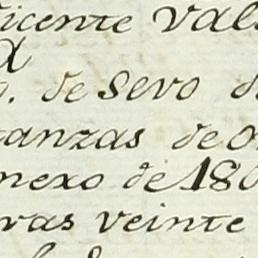 Vicente Vals
a
. de Sevo de
anzas de o
nexo de 180
vas veinte